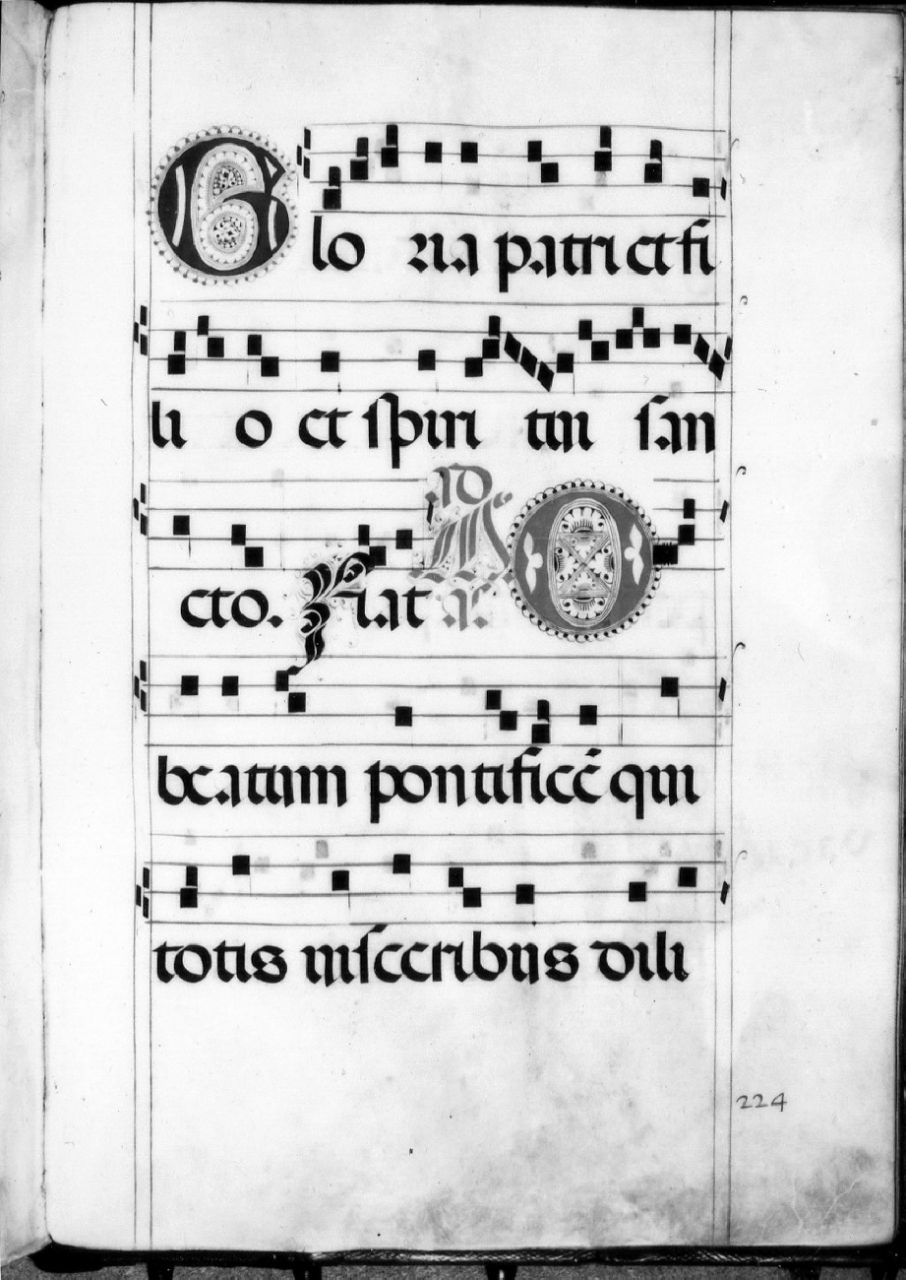 Gloria patri et fi
li o et spiri tui san
cto. Fiat Ad Ma a. O
beatum pontificē qui
totis uisceribus dili
224